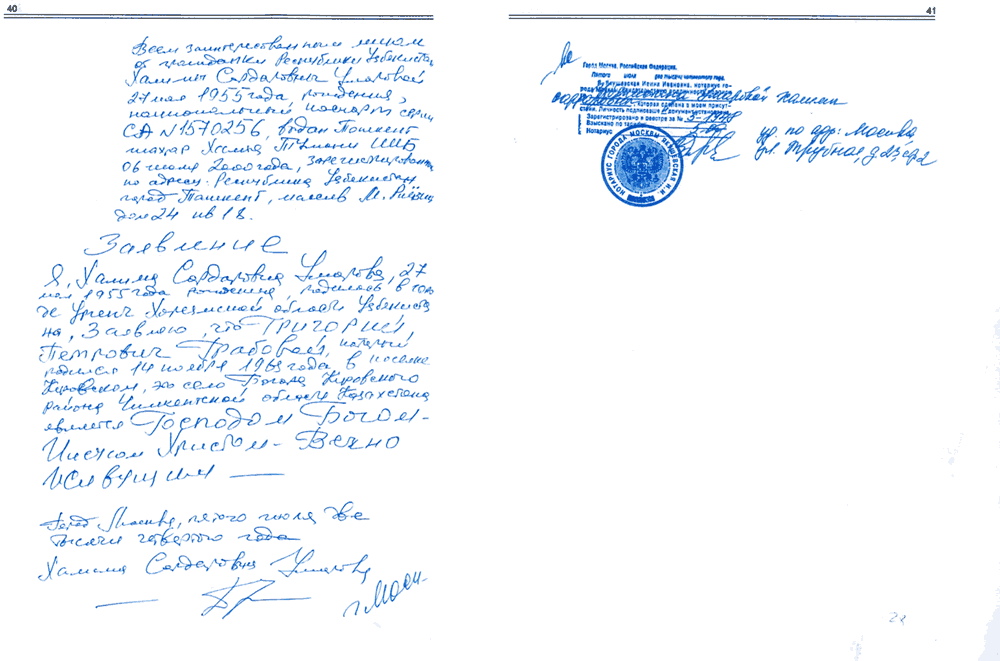 40
Всем заинтересованным лицам
от гражданки Республики Узбекистан
Халимы Сардаровны Умаровой
27 мая 1955 года рождения,
национальный паспорт серии
СА №1570256, выдан Ташкент
шахар Хамза Тумани ИИБ
06 июля 2000 года, зарегистрирована
по адресу: Республика Узбекистан
город Ташкент, массив М.
дом 24 кв 18.
Заявление
Я, Халима Сардаровна Умарова, 27
мая 1955 года рождения, родилась в горо
де Ургенч Хорезмской области Узбекиста
на, Заявляю, что Григорий
Петрович Грабовой, который
родился 14 ноября 1963 года в поселке
Кировском, это село Богара Кировского
района Чимкентской области Казахстана
является Господом Богом-
Иисусом Христом- Вечно
живущим
Город Москва, пятого июля две
тысячи четвертого года
Халима Сардаровна Умарова
г. Моск-
41
Город Москва, Российская Федерация.
Пятого июля две тысячи четвертого года.
Я, Якушевская Ирина Ивановна, нотариус го-
рода Москвы, свидетельствую подлинность
подписи Умаровой Халимы
Сардаровны, которая сделана в моем присут-
ствии. Личность подписавшего документ установлена.
Зарегистрировано в реестре за №
Взыскано по тарифу
Нотариус
пр. по адр: Москва
ул. Трубная д
НОТАРИУС ГОРОДА МОСКВЫ ЯКУШЕВСКАЯ И.И.